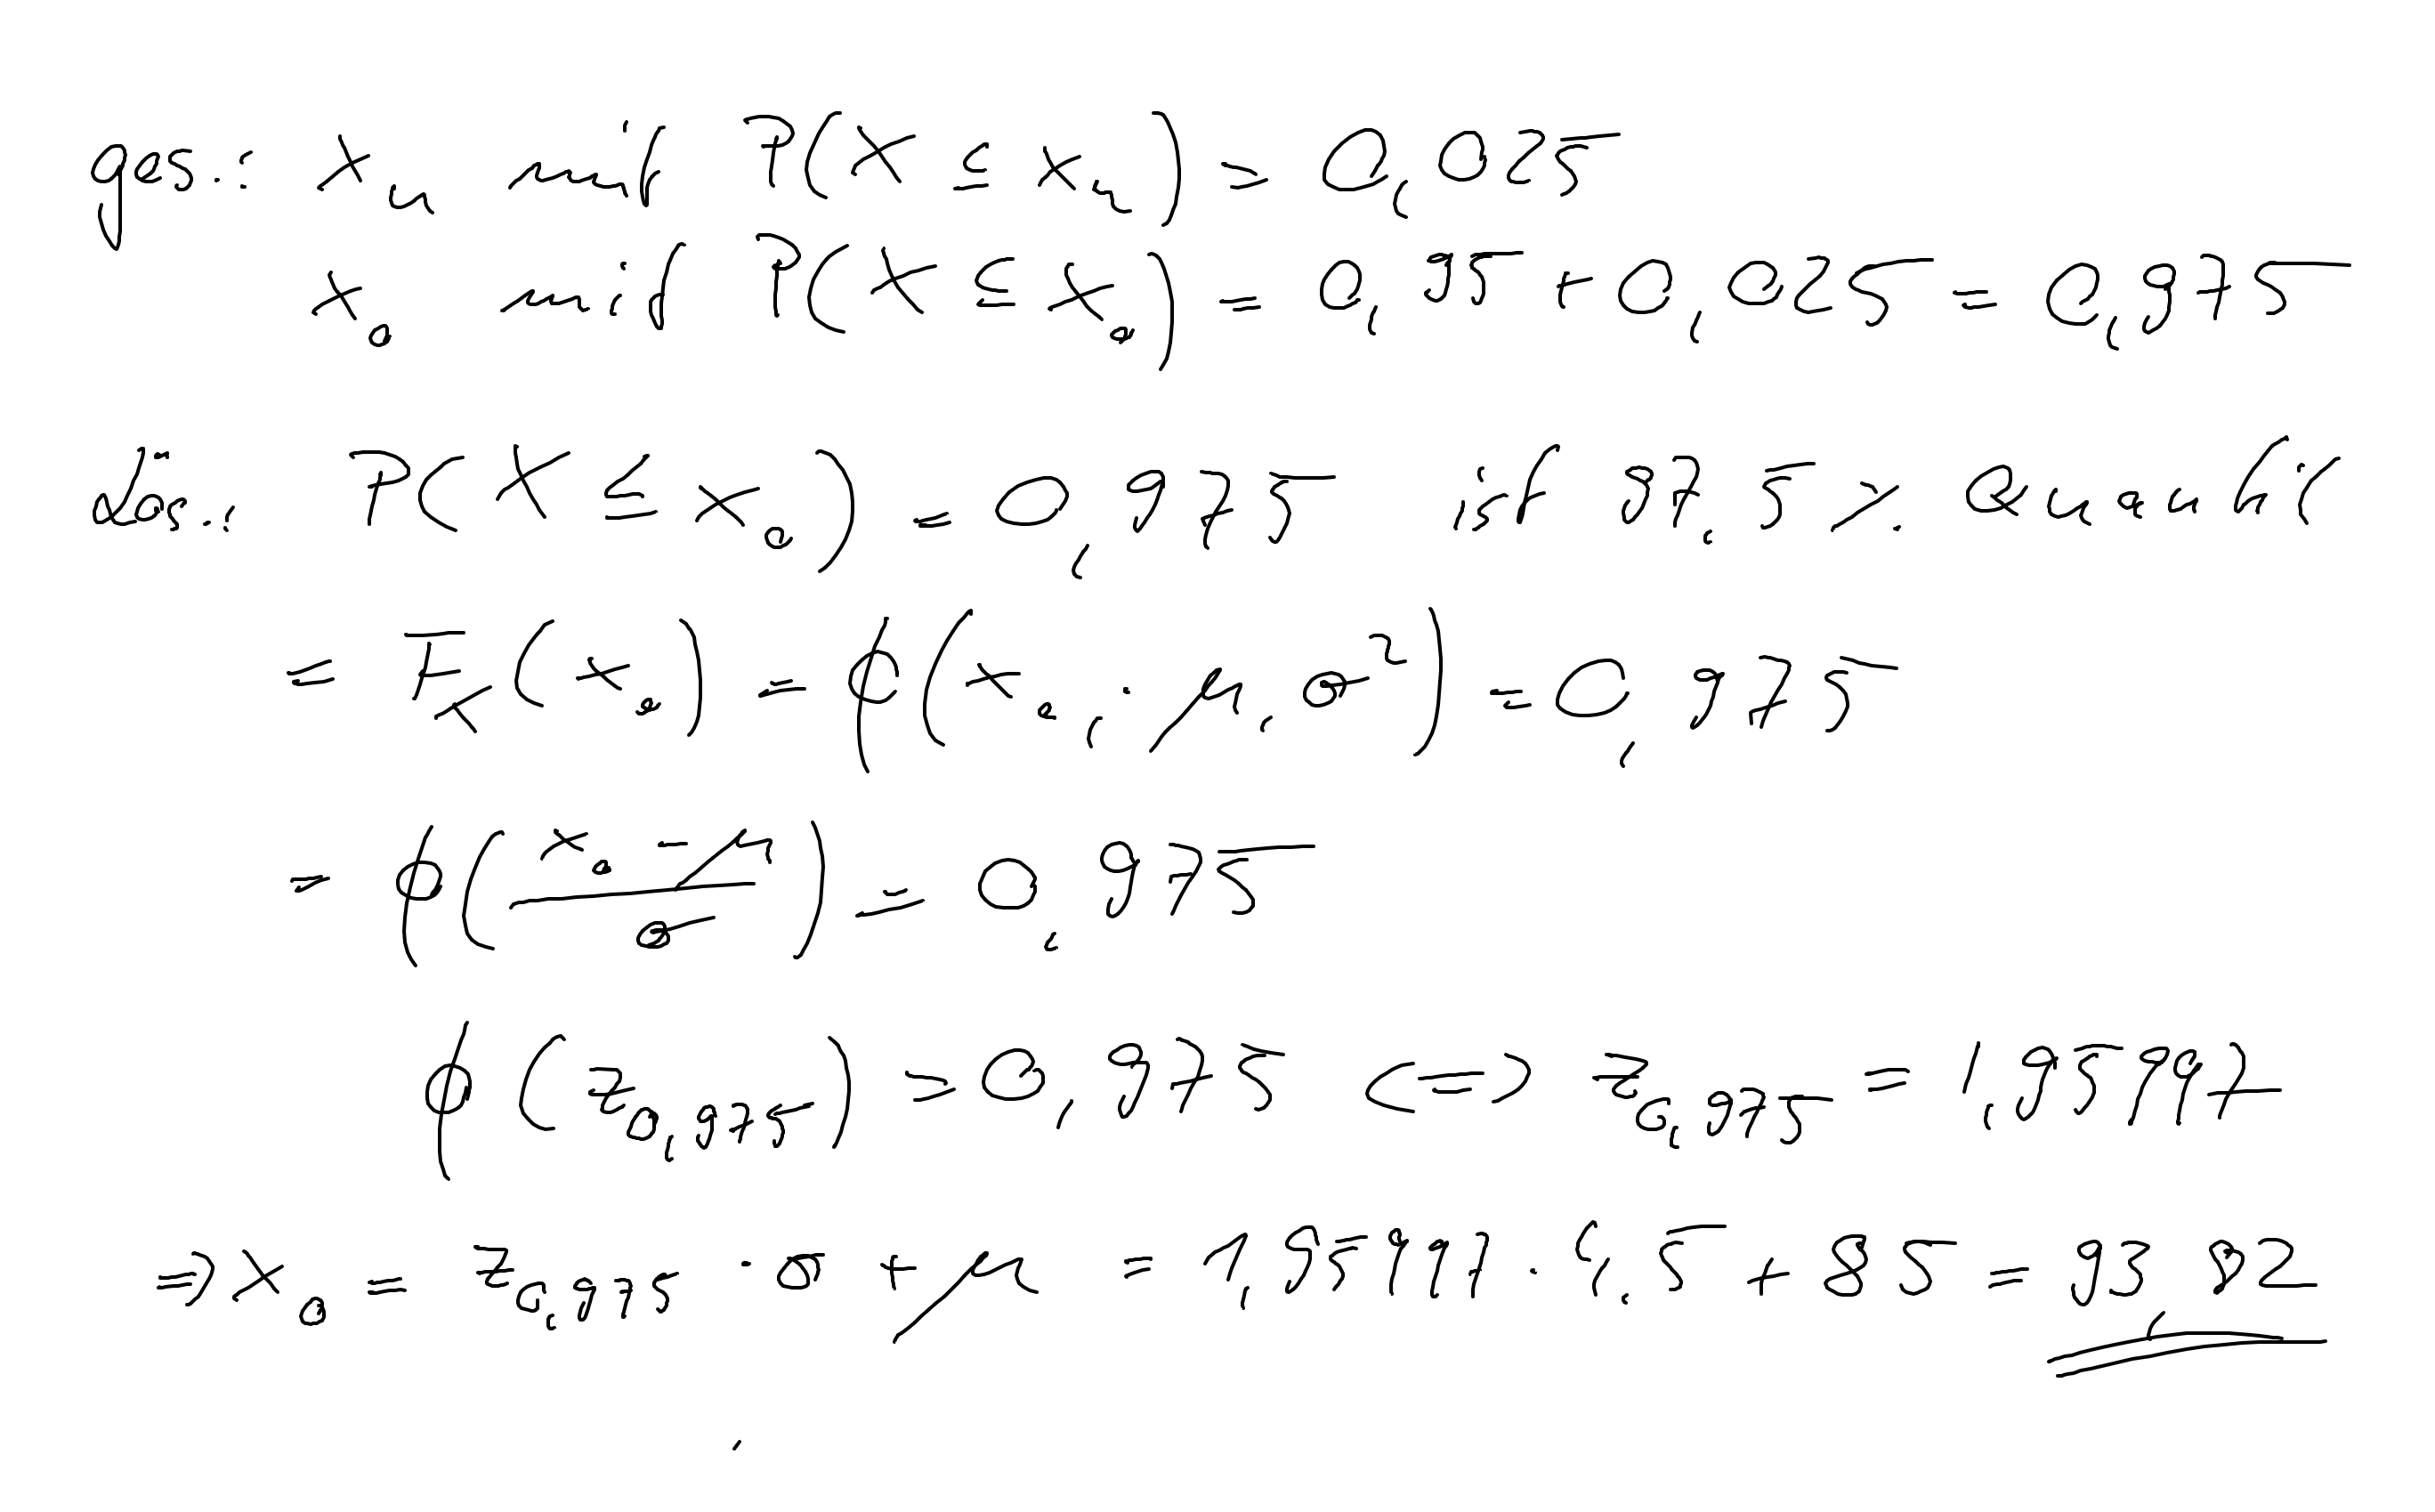 ges.: x_u mit P(X ≤ x_u) = 0,025
x_o mit P(X ≤ x_o) = 0,95 + 0,025 = 0,975
Lös.: P(X ≤ x_o) = 0,975 ist 97,5% Quantil
= F_X(x_o) = ϕ(x_o; μ, σ²) = 0,975
= ϕ((x_o - μ)/σ) = 0,975
ϕ(z_0,975) = 0,975 <=> z_0,975 = 1,9597
=> x_o = z_0,975 · σ + μ = 1,9597 · 4,5 + 85 = 93,82